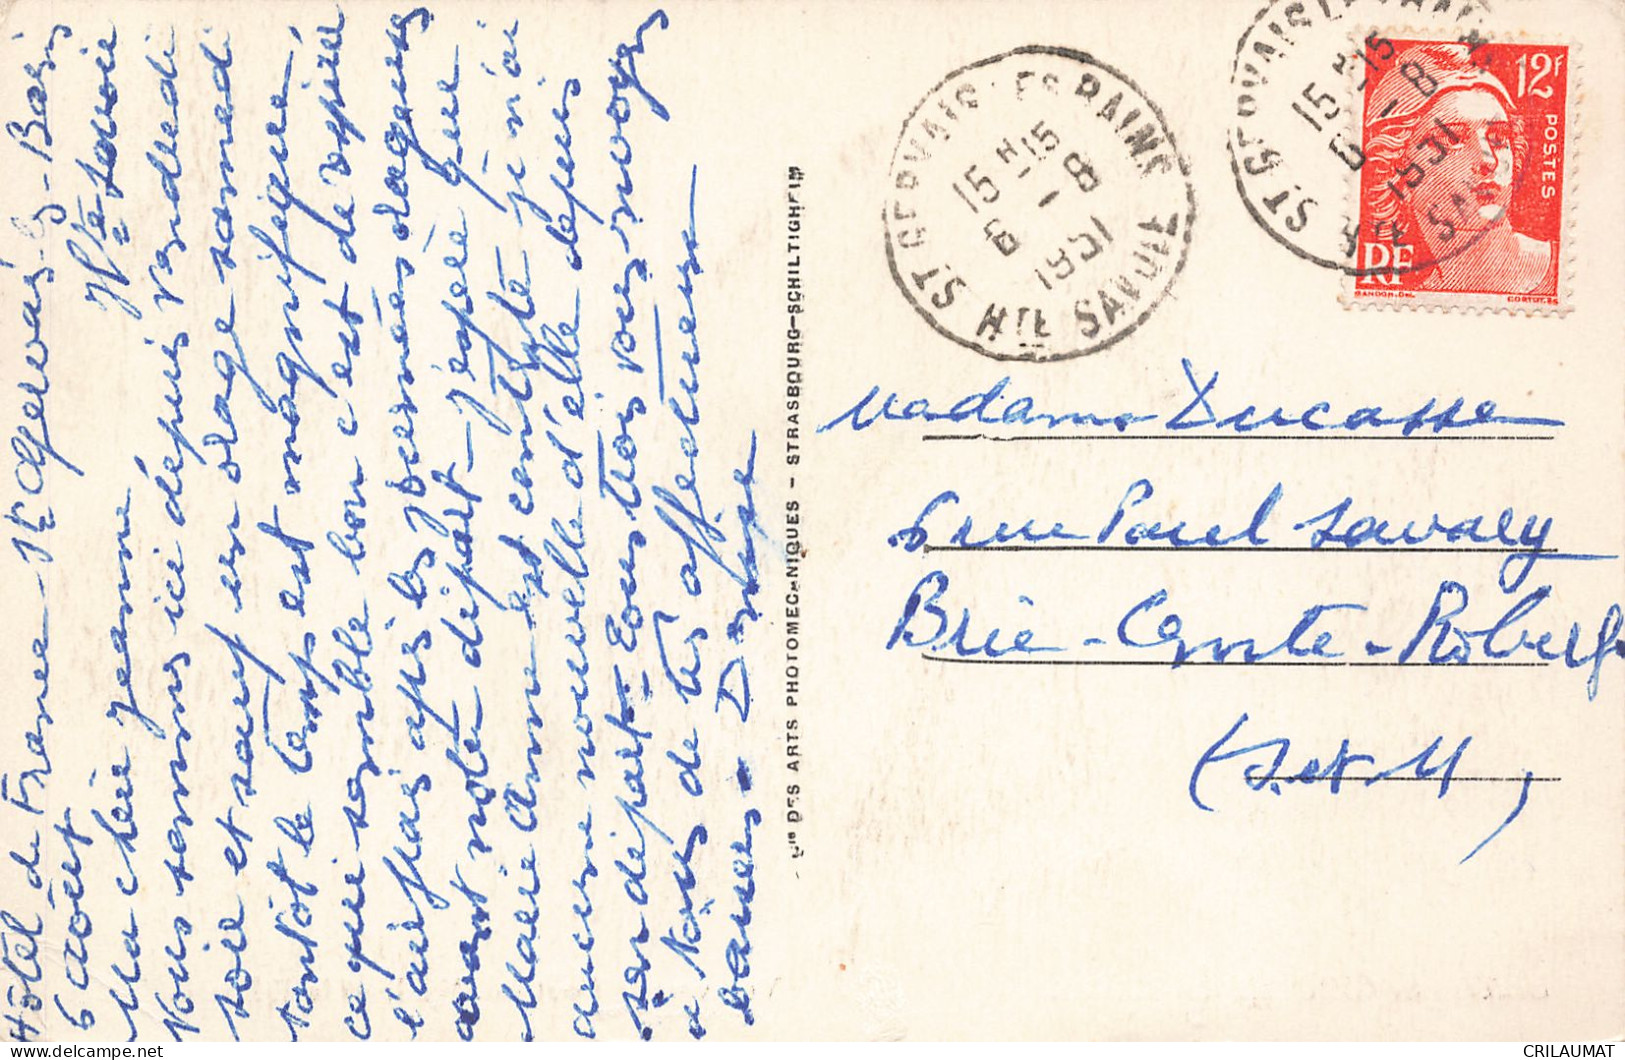 Hôtel de France - St Gervais-les-Bains
6 août Hte Savoie
Ma chère Jeanne
Nous sommes ici depuis vendredi
soir et sauf un orage samedi
tantôt le temps est magnifique,
ce qui semble bon c'est de respirer
l'air frais après les journées
avant notre départ - j'espère que
Marie Anne est contente je n'ai
aucune nouvelle d'elle depuis
son départ - Tous trois vous envoyons
à tous de très affectueux
baisers - Denise
Cie DES ARTS PHOTOMECANIQUES - STRASBOURG-SCHILTIGHEIM
ST GERVAIS LES BAINS
15H-15
6-8
1951
HTE SAVOIE
ST GERVAIS LES BAINS
15H-15
6-8
1951
HTE SAVOIE
12F
POSTES
RF
GANDON.DEL.
CORTOT.SC
Madame Ducasse
6 rue Paul Savary
Brie-Comte-Robert
(S. et M)
CRILAUMAT